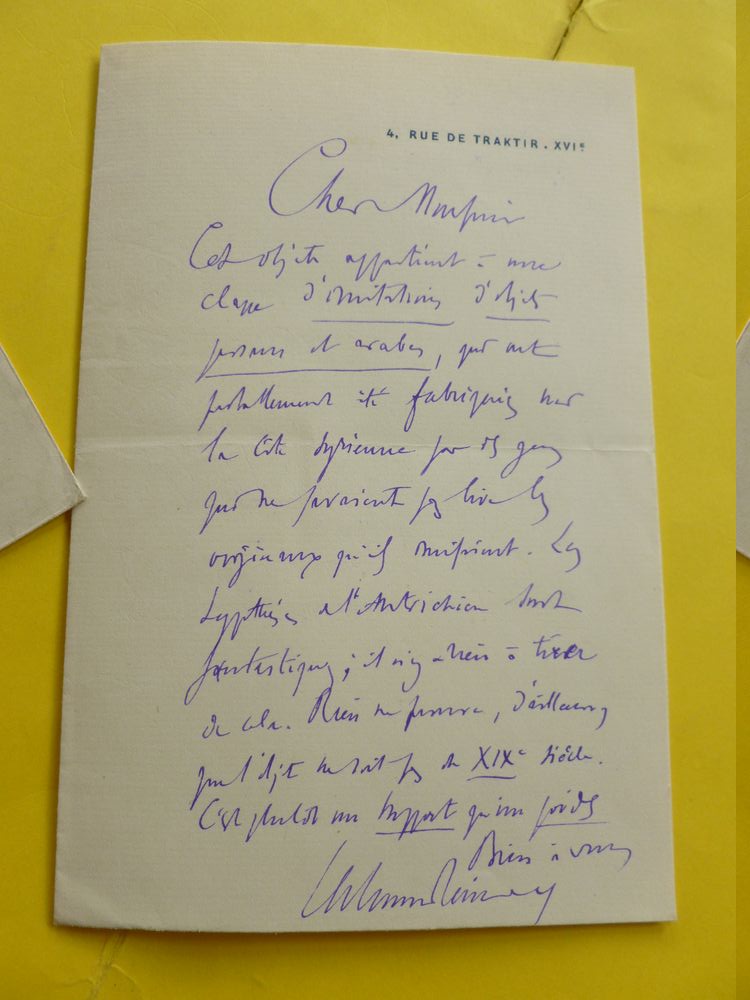 4, RUE DE TRAKTIR . XVIe
Cher Monsieur
Cet objet appartient à une
classe d'imitations d'objets
persans et arabes, qui ont
probablement été fabriqués sur
la côte syrienne par des gens
qui ne savaient pas lire les
originaux qu'ils imitaient. Les
hypothèses de l'Autrichien sont
fantastiques ; il n'y a rien à tirer
de cela. Rien ne prouve, d'ailleurs,
que l'objet ne soit pas du XIXe siècle.
C'est plutôt un support qu'un poids
Bien à vous